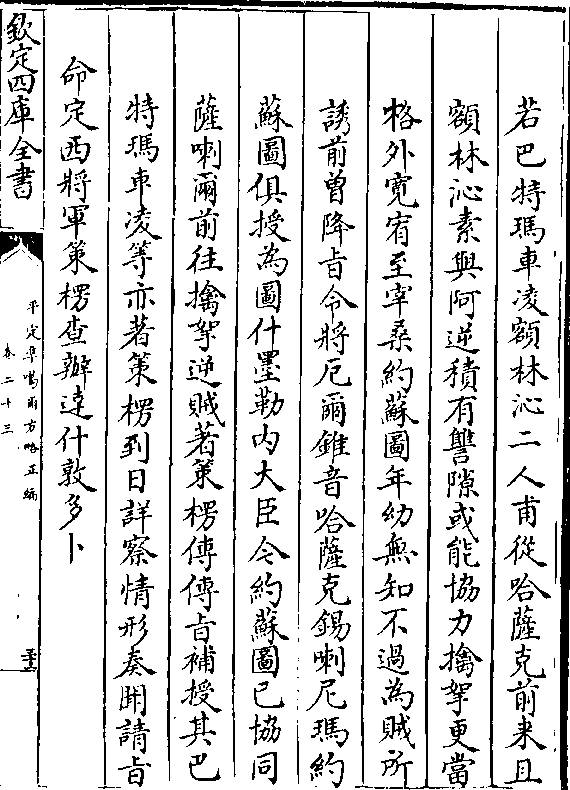 若巴特瑪車凌額林沁二人甫從哈薩克前来且
額林沁素與阿逆積有讐隙或能協力擒拏更當
格外寛宥至宰桑約蘇圖年幼無知不過為賊所
誘前曽降㫖令將厄爾錐音哈薩克錫喇尼瑪約
蘇圖俱授為圖什墨勒内大臣今約蘇圖已協同
薩喇爾前往擒拏逆賊著策楞傳傳㫖補授其巴
特瑪車凌等亦著策楞到日詳察情形奏聞請㫖
命定西將軍策楞查辦達什敦多卜
欽定四庫全書
平定凖噶爾方略正編
卷二十三